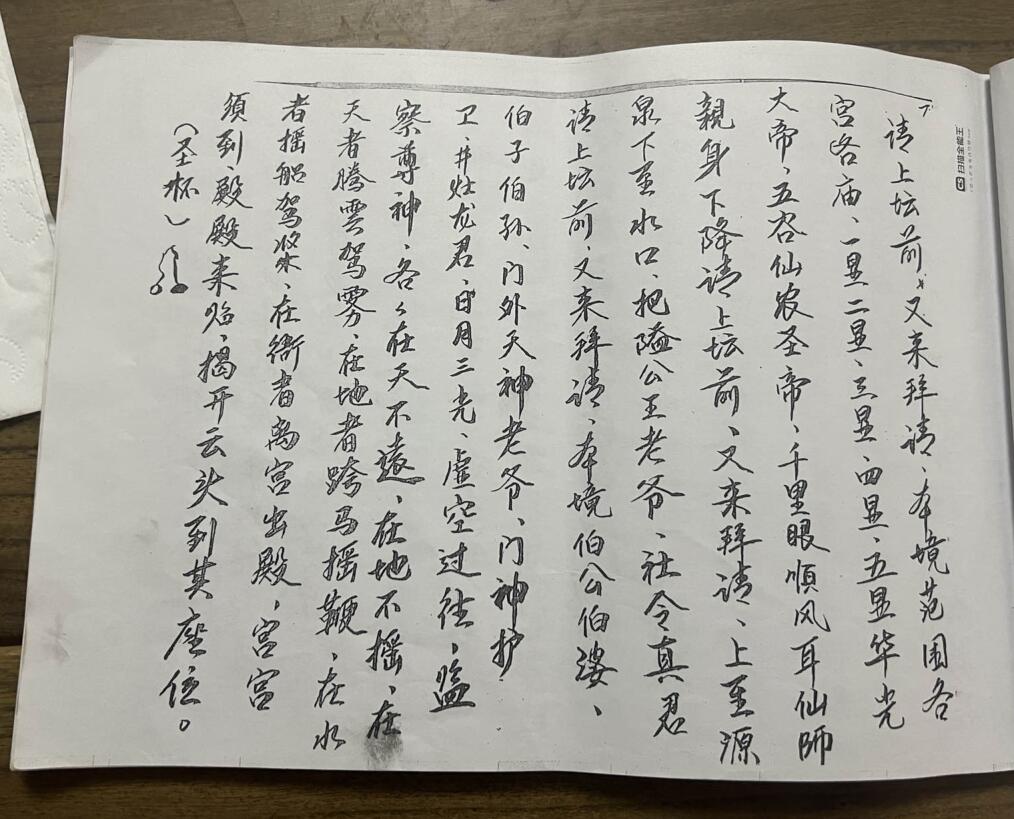 7
请上坛前、又来拜请、本境范围各
宫各庙、一显二显、三显、四显、五显华光
大帝、五谷仙农圣帝、千里眼顺风耳仙師
親身下降請上坛前、又来拜请、上至源
泉下至水口、把隘公王老爷、社令真君
请上坛前、又来拜请、本境伯公伯婆、
伯子伯孙、门外天神老爷、门神护
卫、井灶龙君、日月三光、虚空过往、监
察尊神、各々在天不遠、在地不摇、在
天者腾雲駕雾、在地者跨马摇鞭、在水
者摇船驾桨、在衙者离宫出殿、宫宫
須到、殿殿来临、揭开云头到其座位。
（圣杯）
扫描全能王